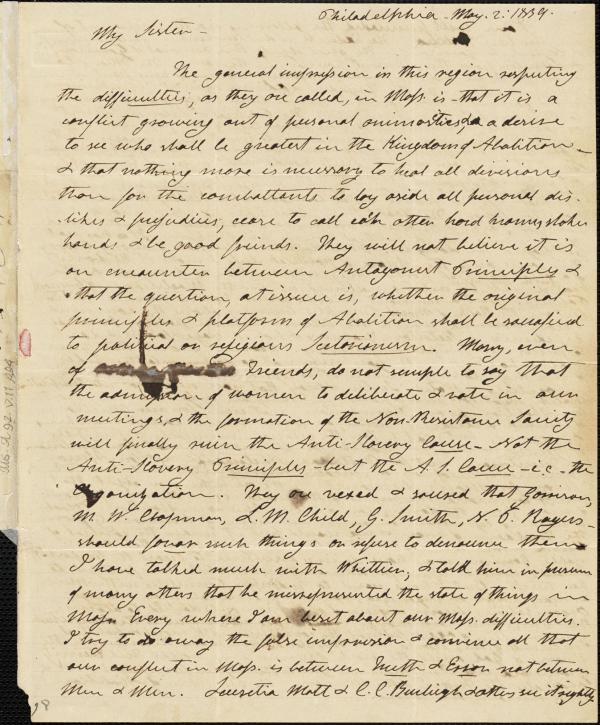 Philadelphia May. 2. 1839.
My Sister -
The general impression in this region respecting
the difficulties, as they are called, in Mass. is - that it is a
conflict growing out of personal animosities & a desire
to see who shall be greatest in the Kingdom of Abolition -
& that nothing more is necessary to heal all divisions
than for the combattants to lay aside all personal dis-
likes & prejudices, cease to call each other hard names, shake
hands & be good friends. They will not believe it is
an encounter between Antagonist Principles &
that the question, at issue is, whether the original
principles & platform of Abolition shall be sacrificed
to political or religious Sectarianism. Many, even
of Friends, do not scruple to say that
the admission of women to deliberate & vote in our
meetings, & the formation of the Non-Resistance Society
will finally ruin the Anti-Slavery Cause - Not the
Anti-Slavery Principles - but the A. S. Cause - i.e. - the
Organization. They are vexed & soused that Garrison,
M. W. Chapman, L. M. Child, G. Smith, N. P. Rogers -
should favor such things or refuse to denounce them
I have talked much with Whittier, & told him in presence
of many others that he misrepresented the state of things in
Mass. Every where I am beset about our Mass. difficulties.
I try to do away the false impression & convince all that
our conflict in Mass. is between Truth & Error not between
Men & Men. Lucretia Mott & C. C. Burleigh & others see it rightly
Ms. A. 9.2 v. 11